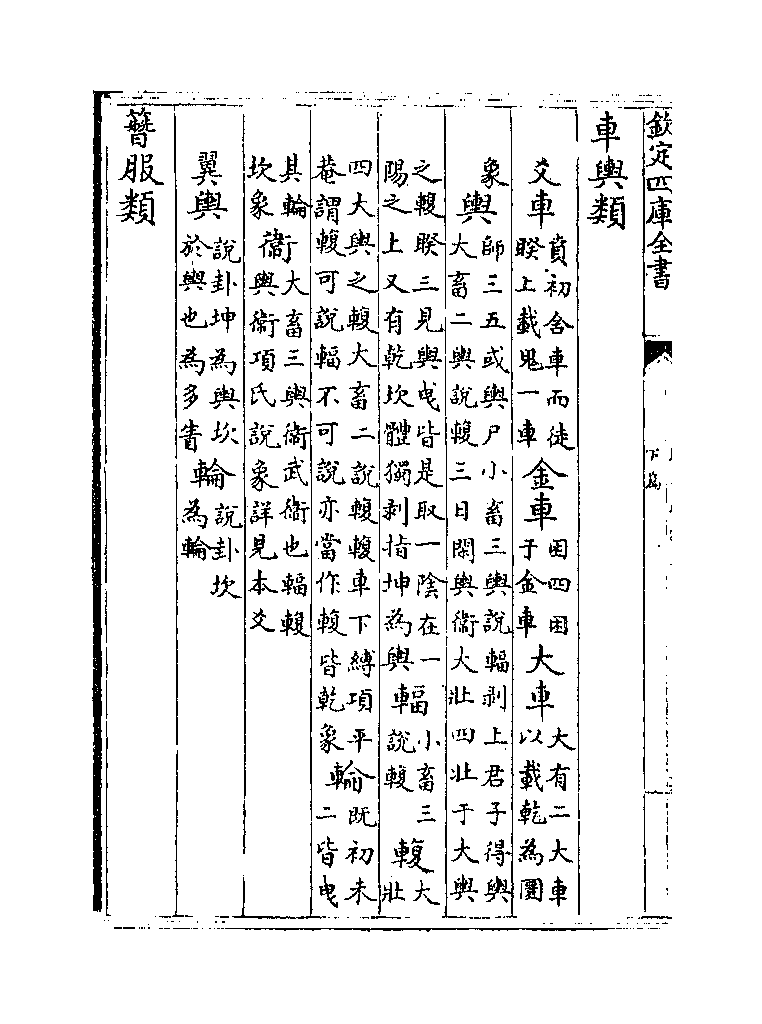 欽定四庫全書
下篇
車輿類
爻車賁初舍車而徒睽上載鬼一車金車困四困于金車大車大有二大車以載乾為圜
象輿師三五或輿尸小畜三輿說輻剥上君子得輿大畜二輿說輹三日閑輿衞大壯四壯于大輿
之輹睽三見輿曳皆是取一陰在一陽之上又有乾坎體獨剥指坤為輿輻小畜三說輹輹大壯
四大輿之輹大畜二說輹輹車下縛項平菴謂輹可說輻不可說亦當作輹皆乾象輪既初未二皆曳
其輪坎象衞大畜三輿衞武衞也輻輹輿衞項氏說象詳見本爻
翼輿說卦坤為輿坎於輿也為多眚輪說卦坎為輪
簪服類